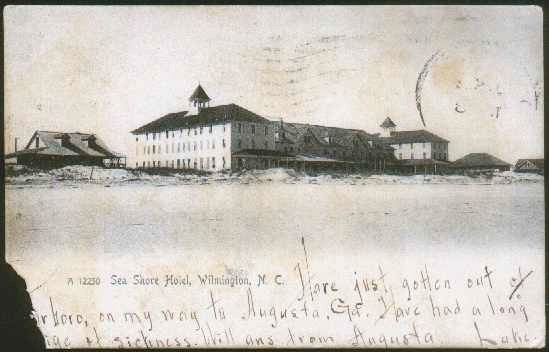 A 12250 Sea Shore Hotel, Wilmington, N. C.
Have just gotten out of
boro, on my way to Augusta, Ga. Have had a long
of sickness. Will ans from Augusta Luke.